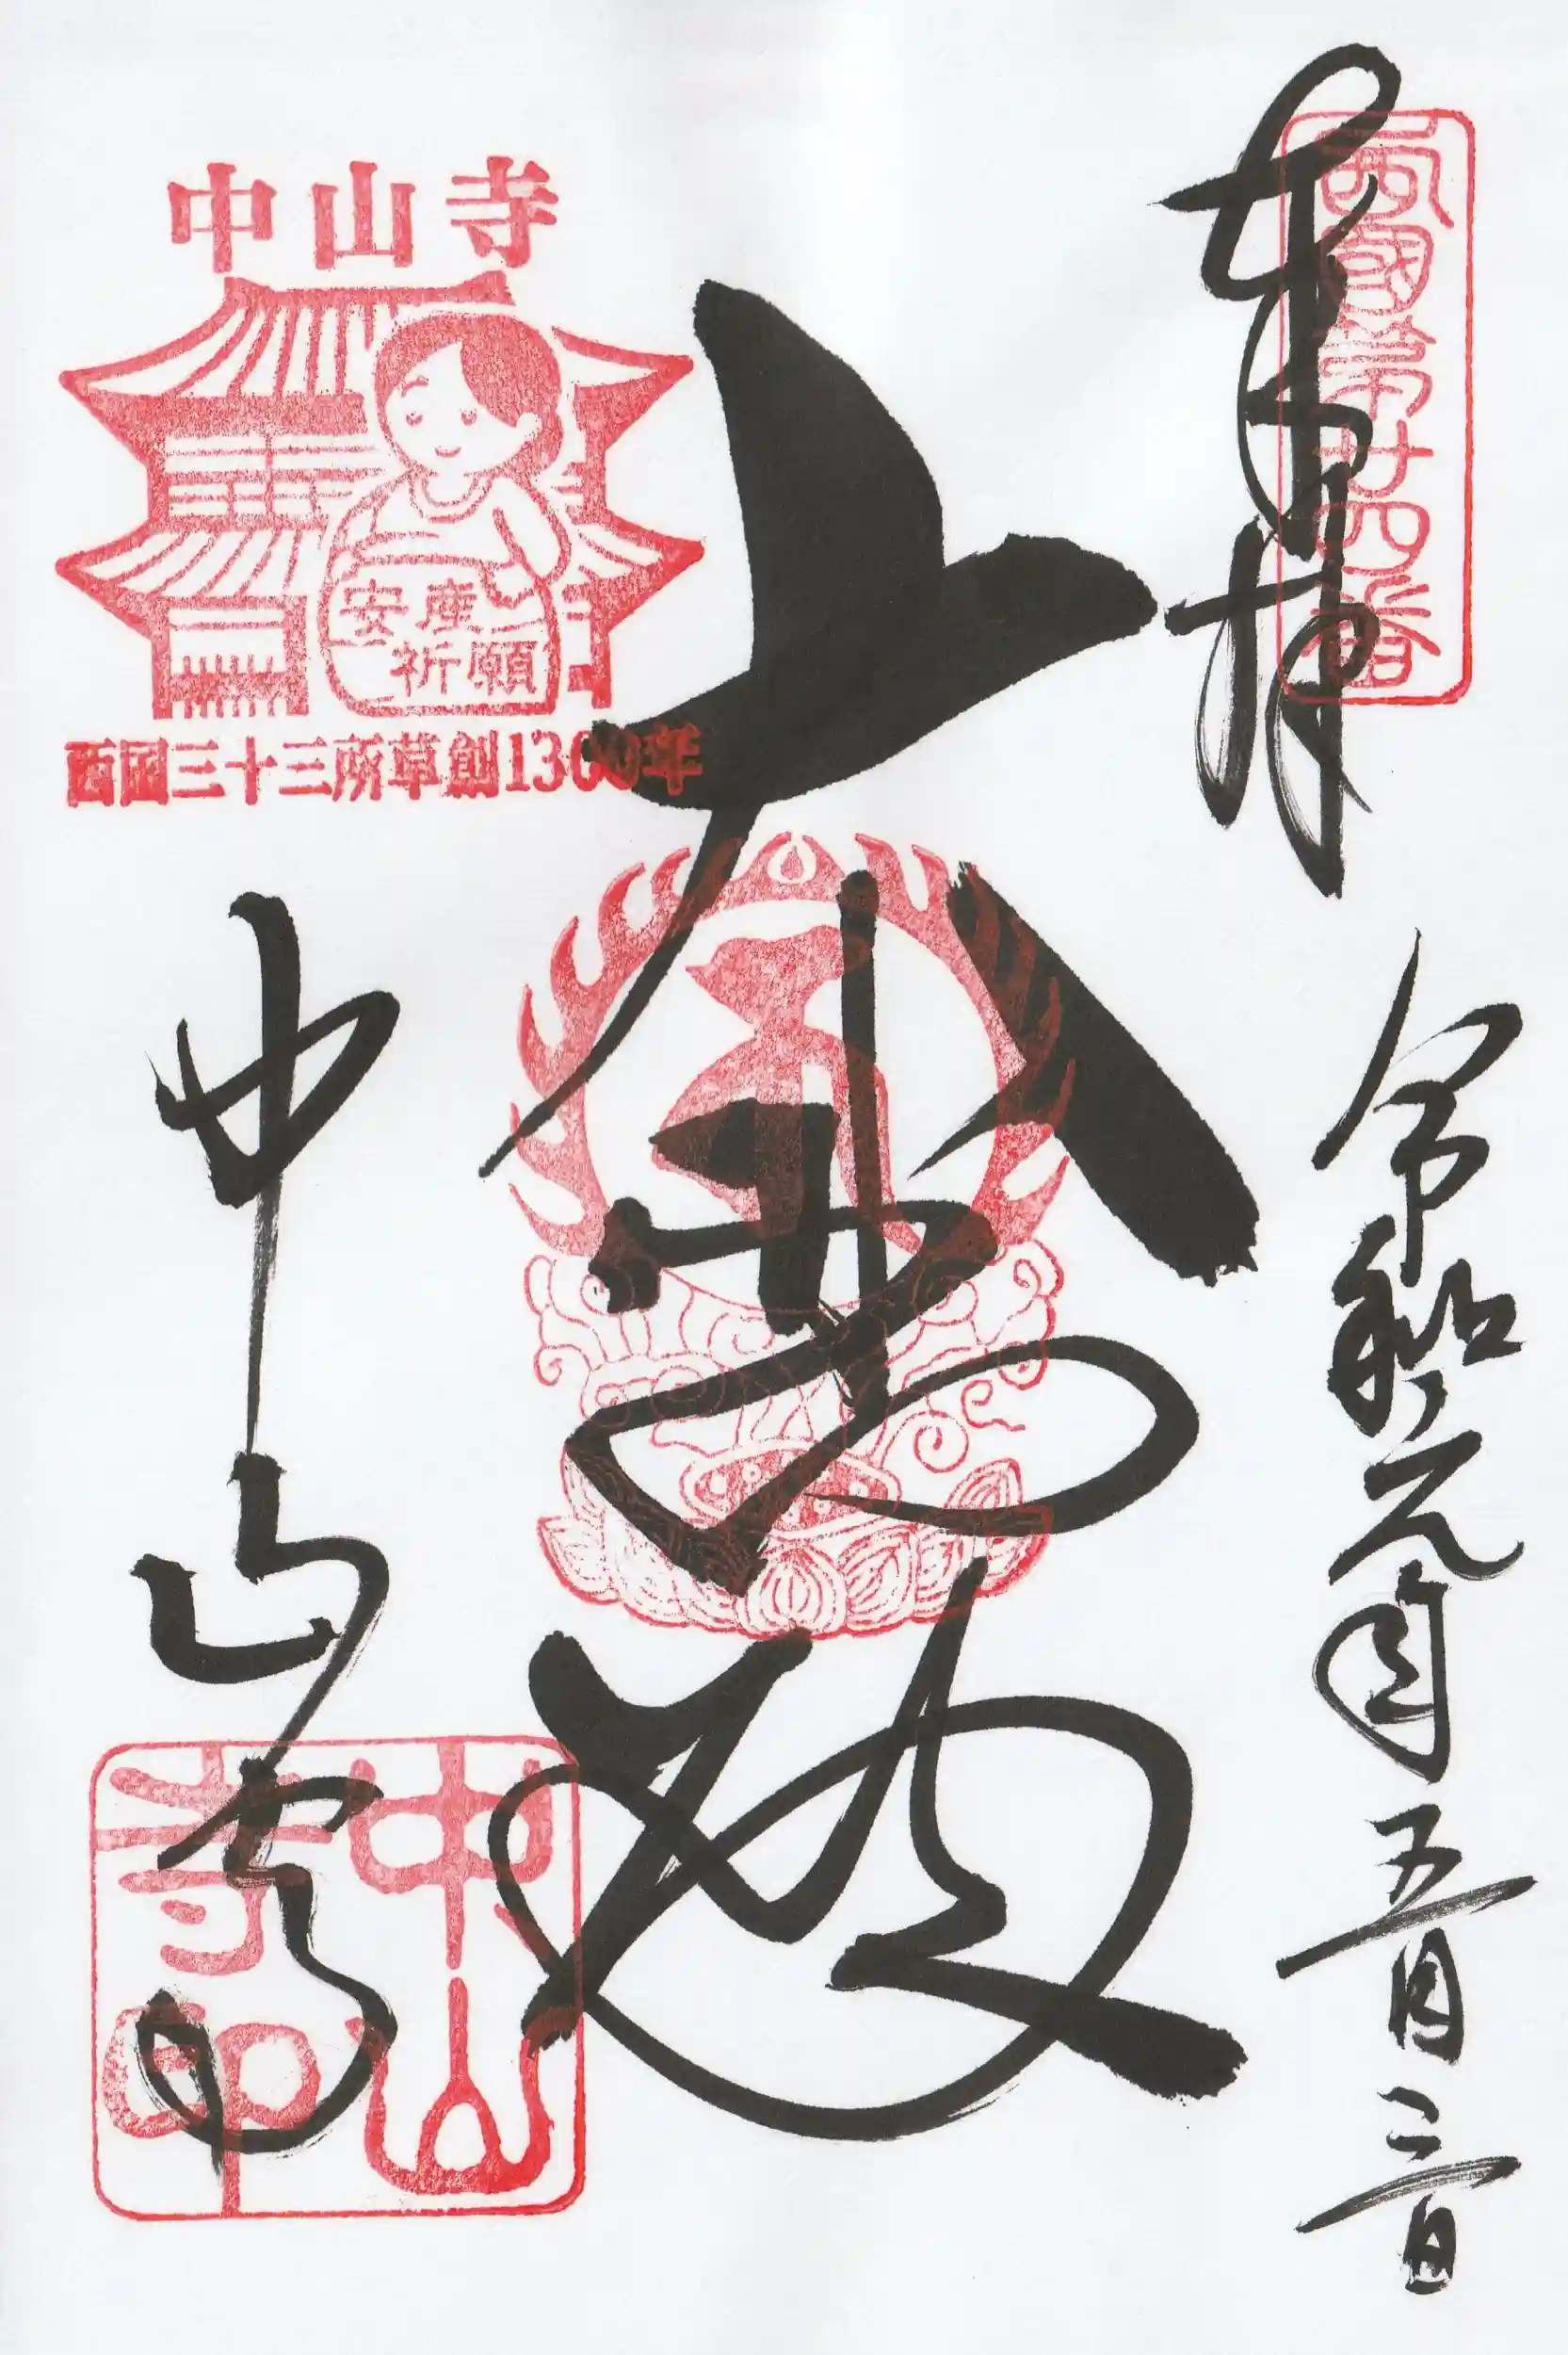 奉拝
西國第廿四番
令和元年五月三日
大悲殿
中山寺
安産
祈願
西国三十三所草創1300年
中山寺
中山
寺印